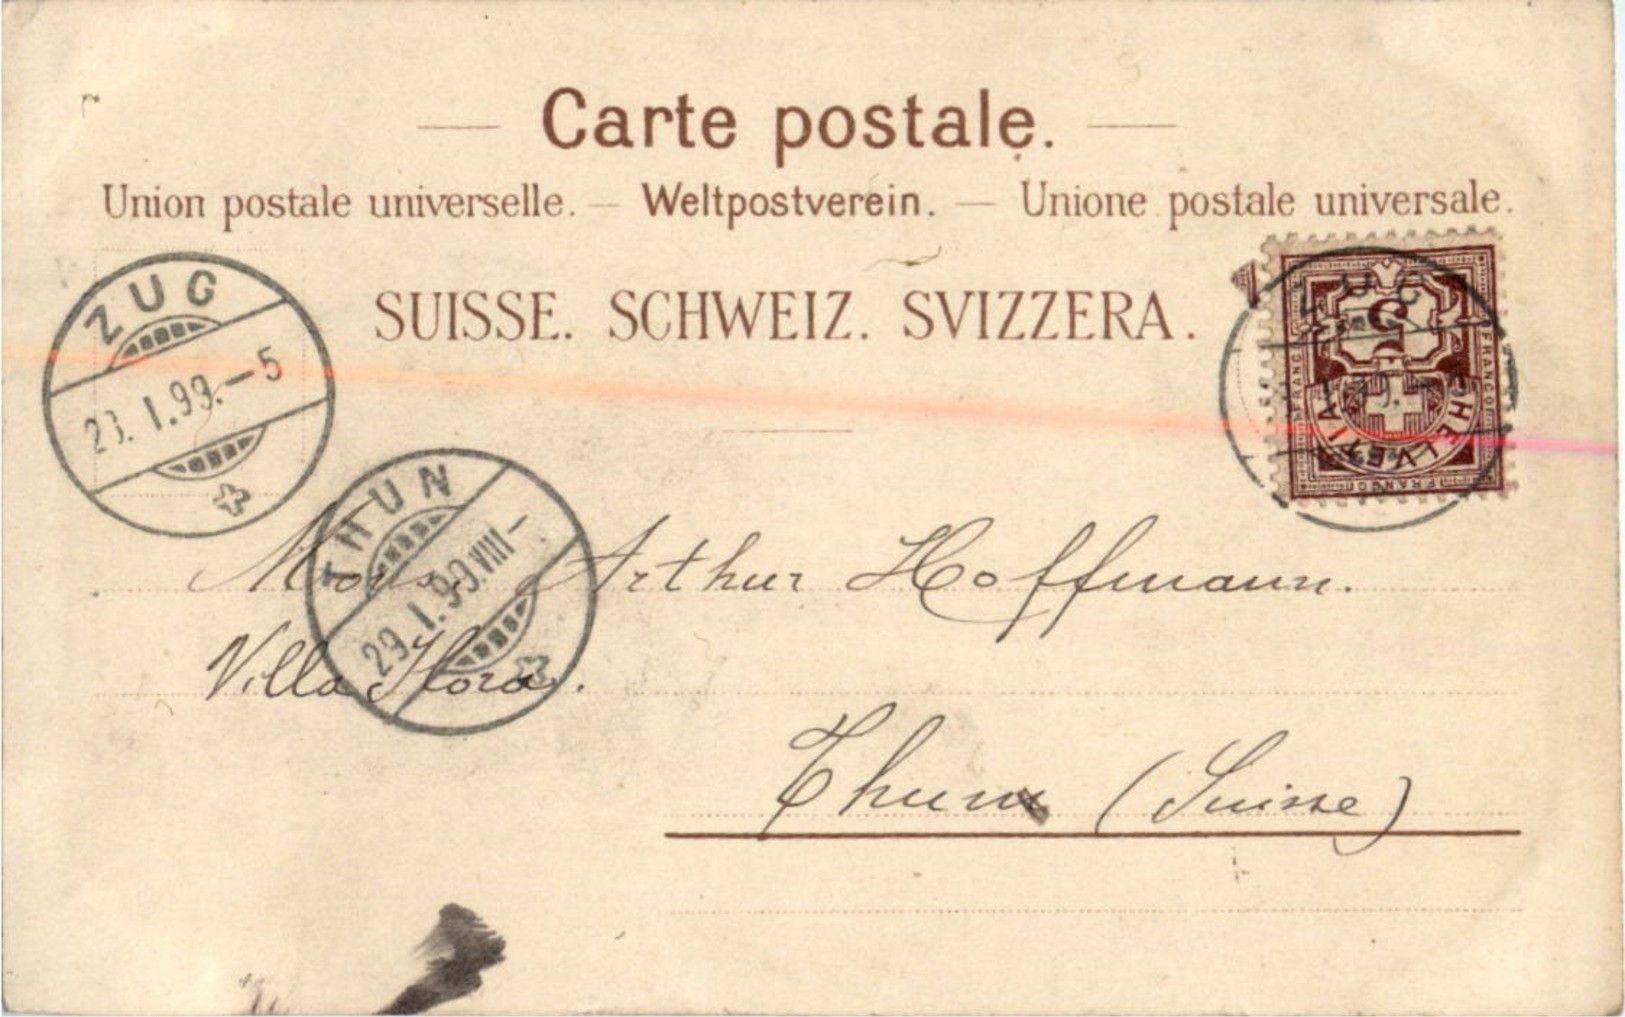 Carte postale.
Union postale universelle. — Weltpostverein. — Unione postale universale.
SUISSE. SCHWEIZ. SVIZZERA.
ZUG
23. I. 99. – 5
ZUG
5
FRANCO
FRANCO
HELVETIA
FRANCO
THUN
29. I. 99. VIII –
Mons. Arthur Hoffmann.
Villa Flora.
Thun (Suisse)